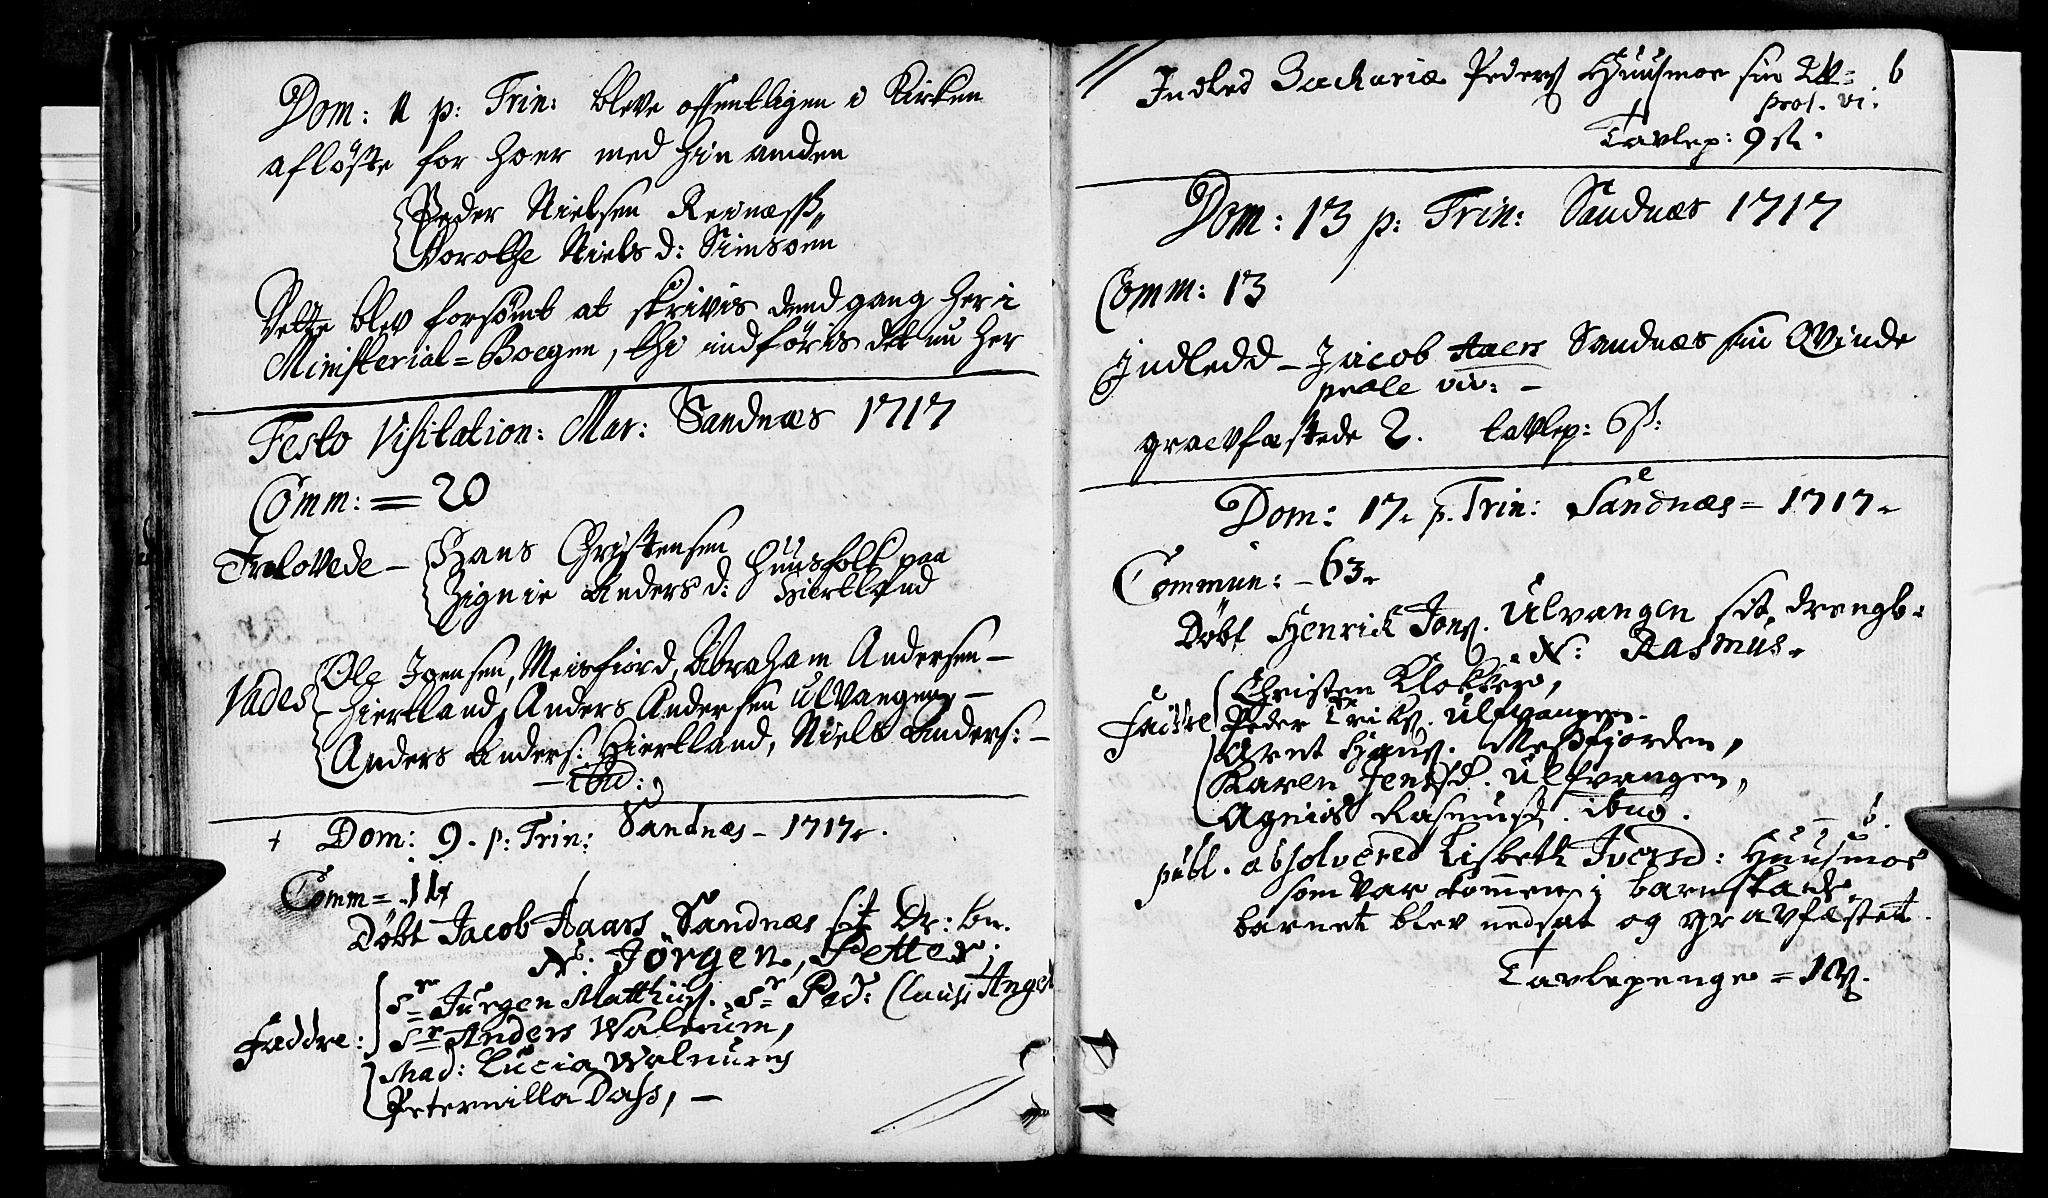 Dom: p: Trin: bleve offentligen i Kirken
afløste for hoer med hin anden
Peder Nielsen Reinæss
Dorothe Niels d: Simsøen
Dette blev forsømt at skrivis dend gang her i
Ministerial=Boegen, thi indføris det nu her
Festo Visitation: Mar: Sandnæs 1717
Comm: = 20
Trolovede – Hans Christensen
Huusfolk paa
Zignie Anders d: Hiertland
Vades Ole Joensen, Meisfiord, Abraham Andersen –
Hiertland, Anders Andersen Ulvangen –
Anders Anders: Hiertland, Niels Anders: –
– ibid:
† Dom: 9. p: Trin: Sandnæs – 1717.
Comm = 11
Døbt Jacob Haars Sandnæs sit Dr: bn.
N: Jørgen, Petter;
Sr Jürgen Matthiss. Sr Ped: Clauss Angel
Faddre: Sr Anders Walnum,
Mad: Lucia Walnums
Peternilla Dass, –
6
Indled Zachariæ Peders Huusmoe sin Qv=
prol. vi:
Tavlep: 9 sk
Dom: 13 p: Trin: Sandnæs 1717
Comm: 13
Indledd – Jacob Haers Sandnæs sin Qvinde
prole viv: –
graevfæstede 2. tavlep: 6 s:
Dom: 17. p. Trin: Sandnæs – 1717.
Commun: – 63.
Døbt Henrick Jons. Ulvangen sit drengb.
N: Rasmus.
Christen Klokker,
Faddre Peder Eriks. Ulfvangen.
Arent Hans. Mesfjorden,
Karen Jensd. Ulfvangen,
Agnis Rasmusd. ibid.
publ. absolvered Lisbeth Iversd: Huusmoe
som var kommen i barnskade.
barnet blev nedsat og gravfæstet.
Tavlepenge =